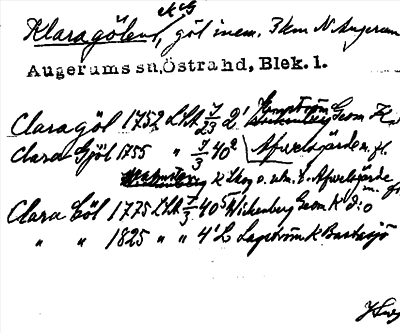 AG
Klaragölen, göl inem. 3 km N Augerum
Augerums sn, Östra hd, Blek. l.
Claragöl 1752 LSA 7/23 2¹ Geom K
Clara Gjöl 1755 " 7/3 40² Afvelsgärde m. fl.
K Skog o. utm. t. Afvelsgärde m. fl.
Clara Göl 1775 LSA 7/3 40⁵ Wickenberg Geom K d:o
" " 1825 " " 4¹ L Lagström K Bastasjö